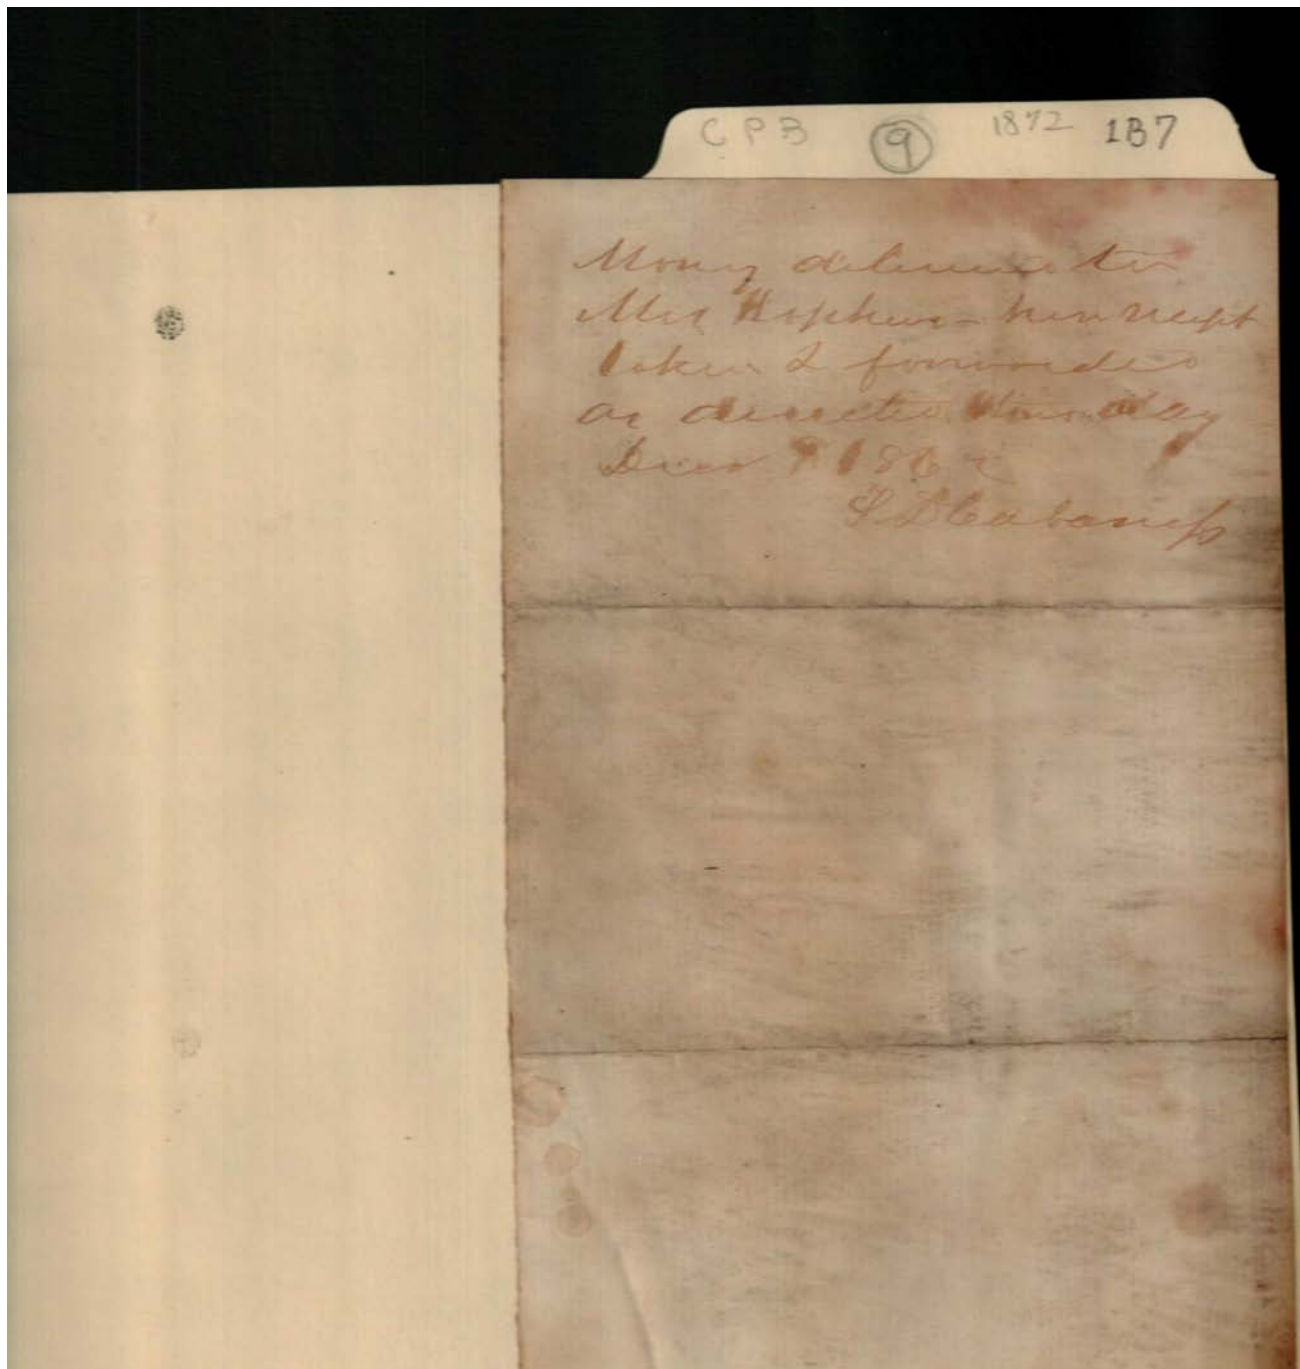 CPB 9 1872 1B7
Money delivered to
Mrs Hopkins - her receipt
taken & forwarded
as directed this day
Decr 9 186
S D Cabaness